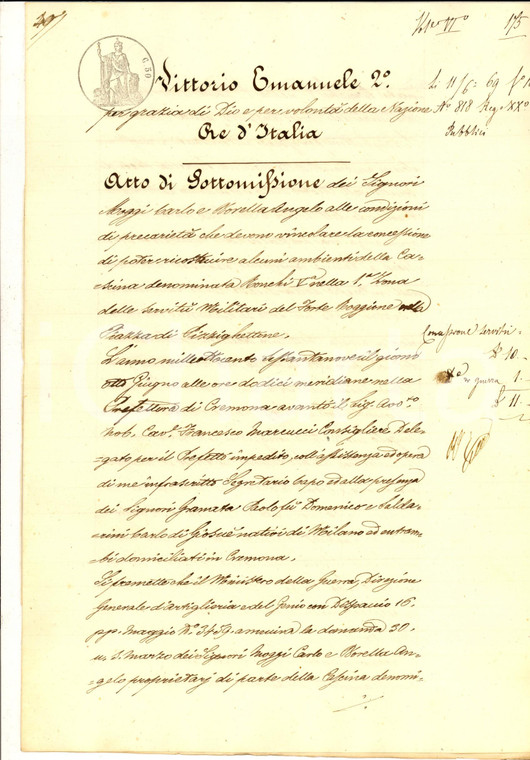 175
G. 50
Vittorio Emanuele 2º.
per grazia di Dio e per volontà della Nazione
Re d'Italia
L. 11/6: 69
Nº 818 Reg. XXº
Pubblici
Atto di Sottomissione dei Signori
Moggi Carlo e Novella Angelo alle condizioni
di precarietà che devono vincolare la concessione
di poter ricostruire alcuni ambienti della Ca=
scina denominata Ronchi nella 1ª Zona
delle Servitù Militari del Forte Roggione nella
Piazza di Pizzighettone.
L'anno milleottocento sessantanove il giorno
otto Giugno alle ore dodici meridiane nella
Prefettura di Cremona avanti il Sig. Avvº.
nob. Cavº. Francesco Marcucci Consigliere Dele=
gato per il Prefetto impedito, coll'assistenza ed opera
di me infrascritto Segretario Capo ed alla presenza
dei Signori Granata Paolo fu Domenico e Balda=
rini Carlo di Giosuè nativi di Milano ed entram=
bi domiciliati in Cremona.
Si premette che il Ministro della Guerra, Direzione
Generale d'Artiglieria e del Genio con Dispaccio 16
pp. Maggio Nº 3459 annuiva la domanda 30
u. s. Marzo dei Signori Moggi Carlo e Novella An=
gelo proprietarj di parte della Cascina denomi=
10 -
guerra 1 -
11 -